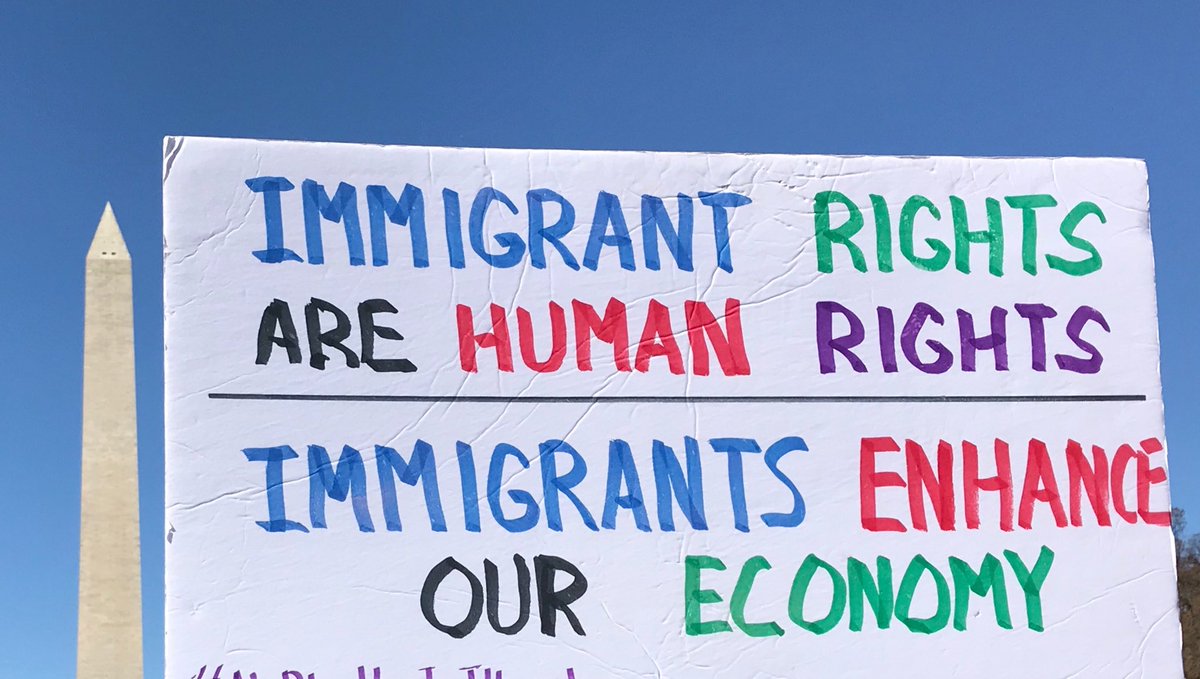 IMMIGRANT RIGHTS
ARE HUMAN RIGHTS
IMMIGRANTS ENHANCE
OUR ECONOMY